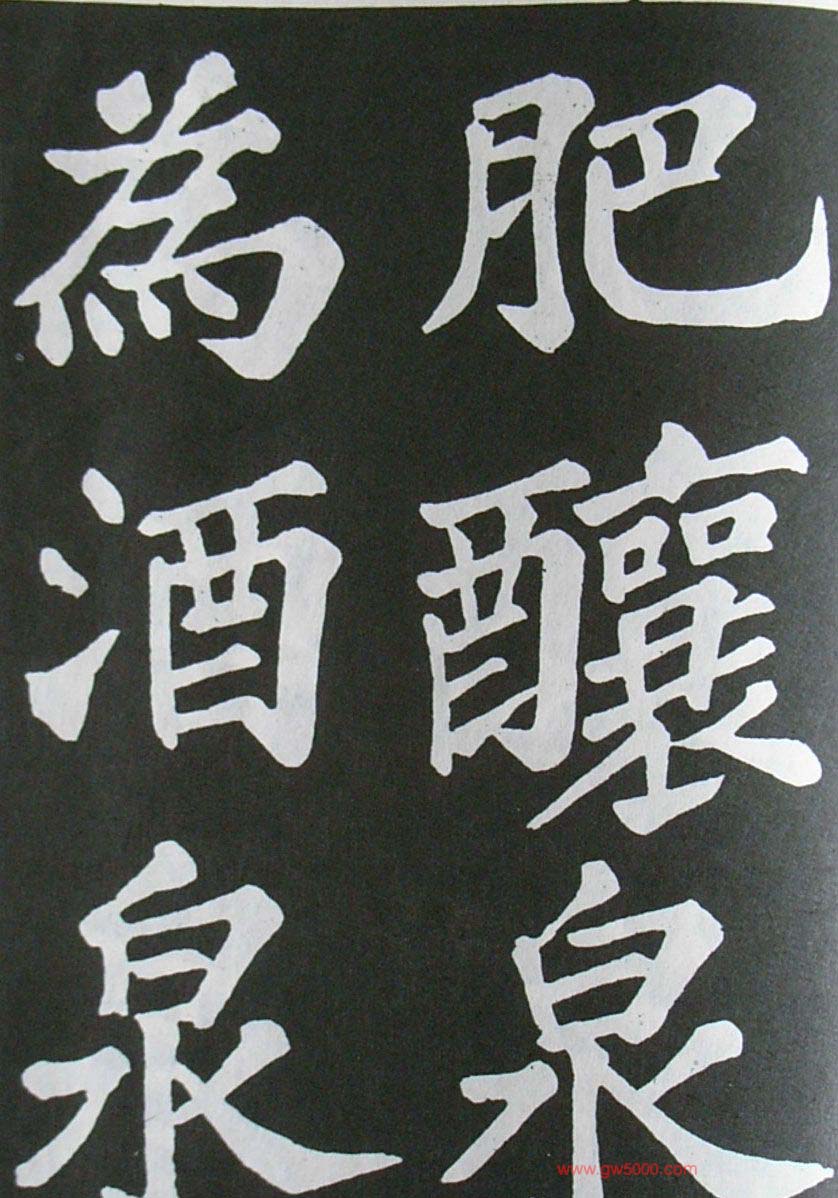 肥釀泉
為酒泉
www.gw5000.com